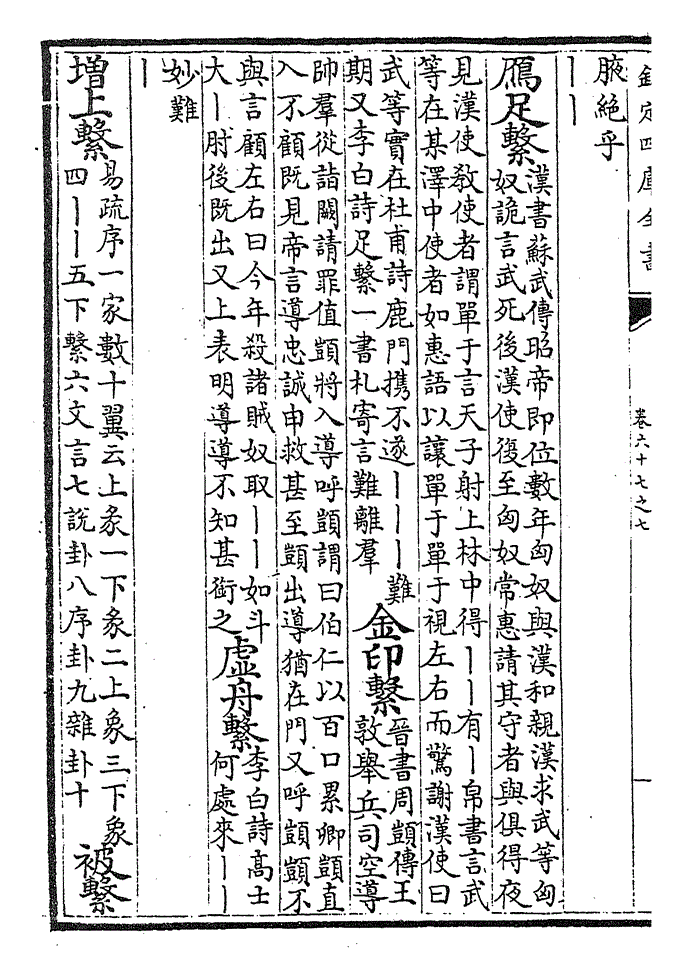 欽定四庫全書
卷六十七之七
腋絶乎
丨丨
鴈足繫
漢書蘇武傳昭帝即位數年匈奴與漢和親漢求武等匈
奴詭言武死後漢使復至匈奴常惠請其守者與俱得夜
見漢使敎使者謂單于言天子射上林中得丨丨有丨帛書言武
等在某澤中使者如惠語以讓單于單于視左右而驚謝漢使曰
武等實在杜甫詩鹿門携不遂丨丨丨難
期又李白詩足繫一書札寄言難離羣
金印繫
晉書周顗傳王
敦舉兵司空導
帥羣從詣闕請罪值顗將入導呼顗謂曰伯仁以百口累卿顗直
入不顧既見帝言導忠誠申救甚至顗出導猶在門又呼顗顗不
與言顧左右曰今年殺諸賊奴取丨丨如斗
大丨肘後既出又上表明導導不知甚銜之
虛舟繫
李白詩高士
何處來丨丨
妙難
丨
增上繫
易疏序一家數十翼云上彖一下彖二上象三下象
四丨丨五下繫六文言七說卦八序卦九雜卦十
被繫